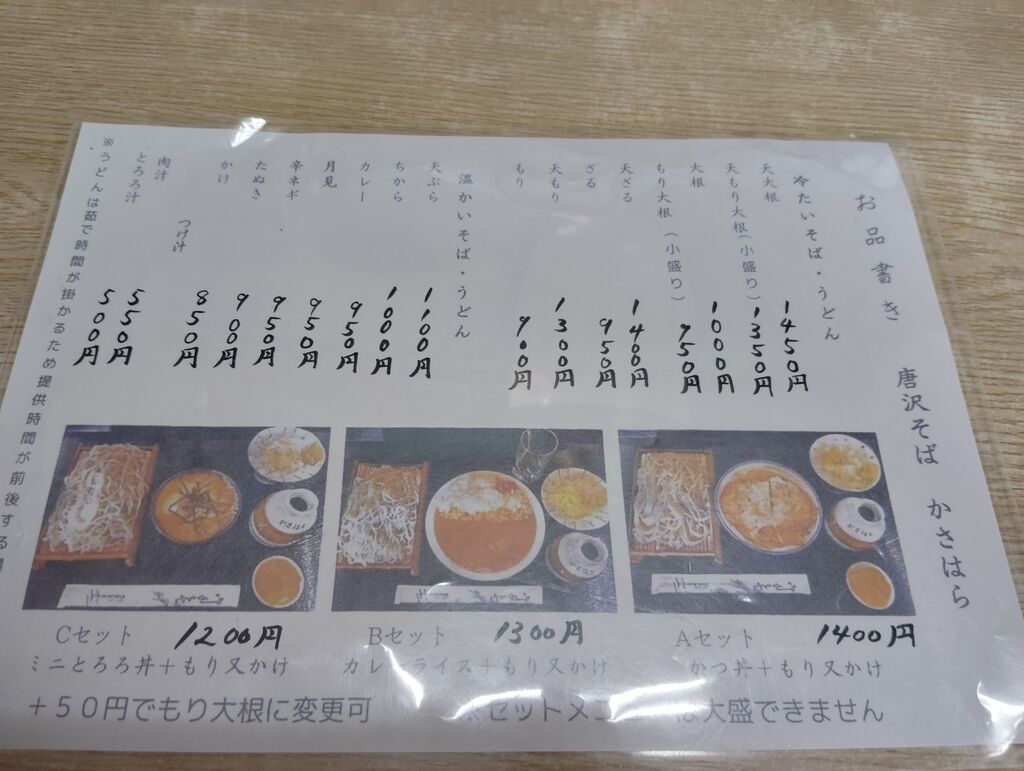 お品書き　唐沢そば　かさはら
冷たいそば・うどん
天大根 1450円
天もり大根（小盛り） 1350円
大根 1000円
もり大根（小盛り） 950円
天ざる 1400円
ざる 950円
天もり 1300円
もり 900円
温かいそば・うどん
天ぷら 1100円
ちから 1000円
カレー 950円
月見 950円
辛ネギ 950円
たぬき 900円
かけ 850円
つけ汁
肉汁 550円
とろろ汁 500円
※うどんは茹で時間が掛かるため提供時間が前後する
Aセット 1400円
かつ丼＋もり又かけ
Bセット 1300円
カレーライス＋もり又かけ
Cセット 1200円
ミニとろろ丼＋もり又かけ
＋５０円でもり大根に変更可 ※セットメニューは大盛できません